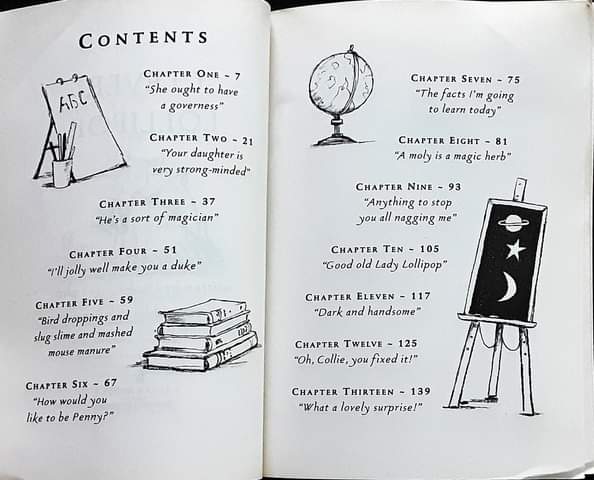 CONTENTS
ABC
CHAPTER ONE ~ 7
"She ought to have
a governess"
CHAPTER TWO ~ 21
"Your daughter is
very strong-minded"
CHAPTER THREE ~ 37
"He's a sort of magician"
CHAPTER FOUR ~ 51
"I'll jolly well make you a duke"
CHAPTER FIVE ~ 59
"Bird droppings and
slug slime and mashed
mouse manure"
CHAPTER SIX ~ 67
"How would you
like to be Penny?"
CHAPTER SEVEN ~ 75
"The facts I'm going
to learn today"
CHAPTER EIGHT ~ 81
"A moly is a magic herb"
CHAPTER NINE ~ 93
"Anything to stop
you all nagging me"
CHAPTER TEN ~ 105
"Good old Lady Lollipop"
CHAPTER ELEVEN ~ 117
"Dark and handsome"
CHAPTER TWELVE ~ 125
"Oh, Collie, you fixed it!"
CHAPTER THIRTEEN ~ 139
"What a lovely surprise!"